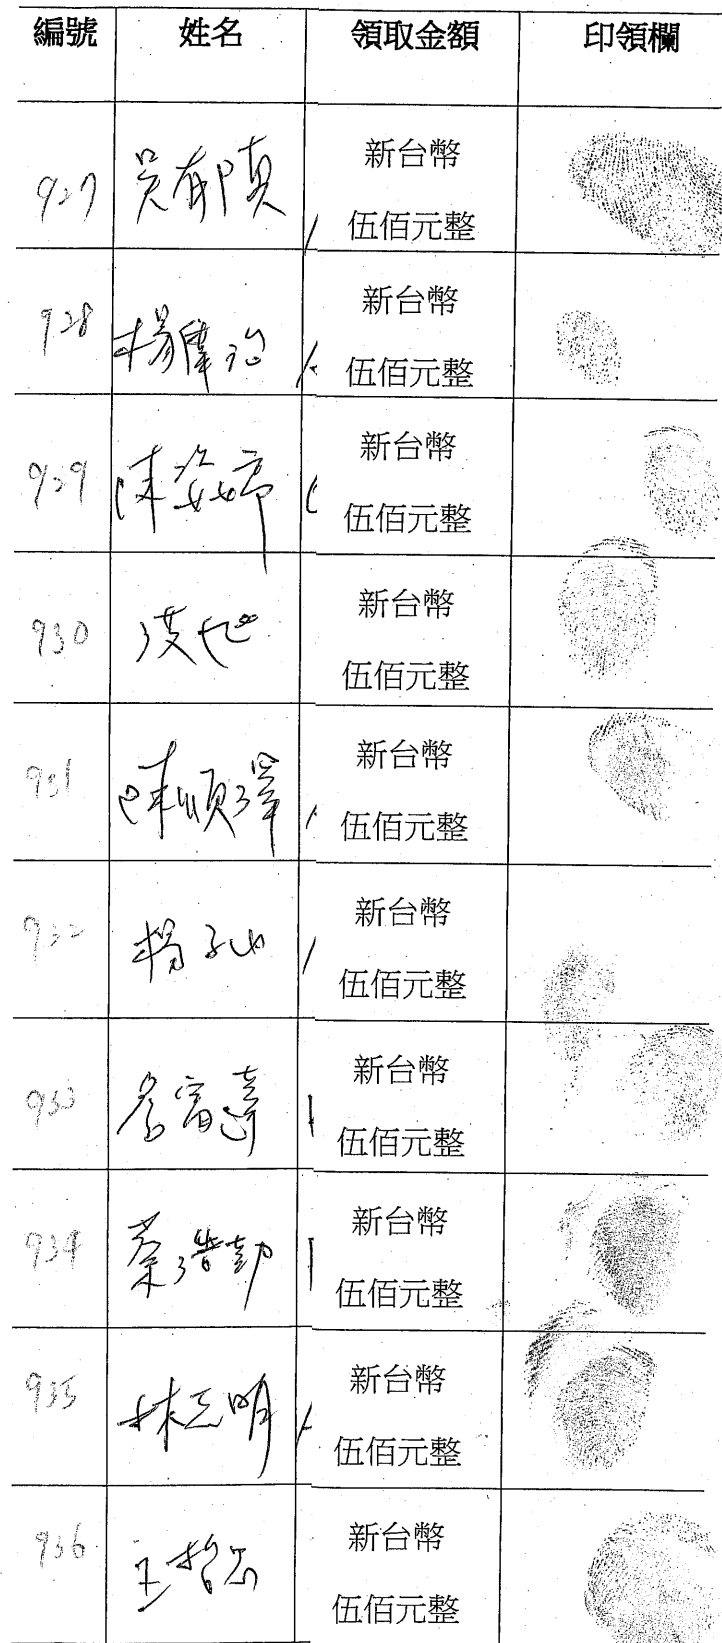 編號 姓名 領取金額 印領欄
927 吳有 新台幣
伍佰元整
928 楊 新台幣
伍佰元整
929 陳姿婷 新台幣
伍佰元整
930 新台幣
伍佰元整
931 陳順澤 新台幣
伍佰元整
932 楊 新台幣
伍佰元整
933 詹富 新台幣
伍佰元整
934 蔡浩勤 新台幣
伍佰元整
935 林志明 新台幣
伍佰元整
936 王 新台幣
伍佰元整